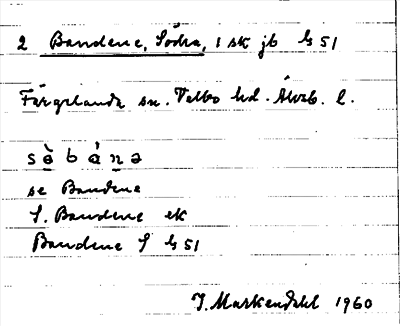 2 Bandene, Södra, 1 sk jb h 51
Färgelanda sn. Valbo hd. Älvsb. l.
sè̱ bá̱ṉə
se Bandene
S. Bandene ek
Bandene S h 51
J. Markendahl 1960